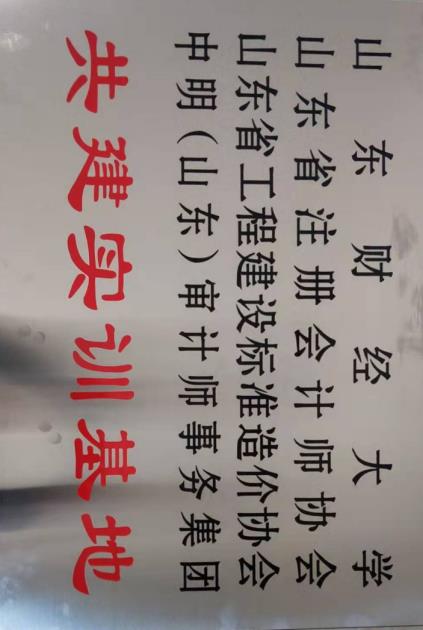 山东财经大学
山东省注册会计师协会
山东省工程建设标准造价协会
中明（山东）审计师事务集团
共建实训基地